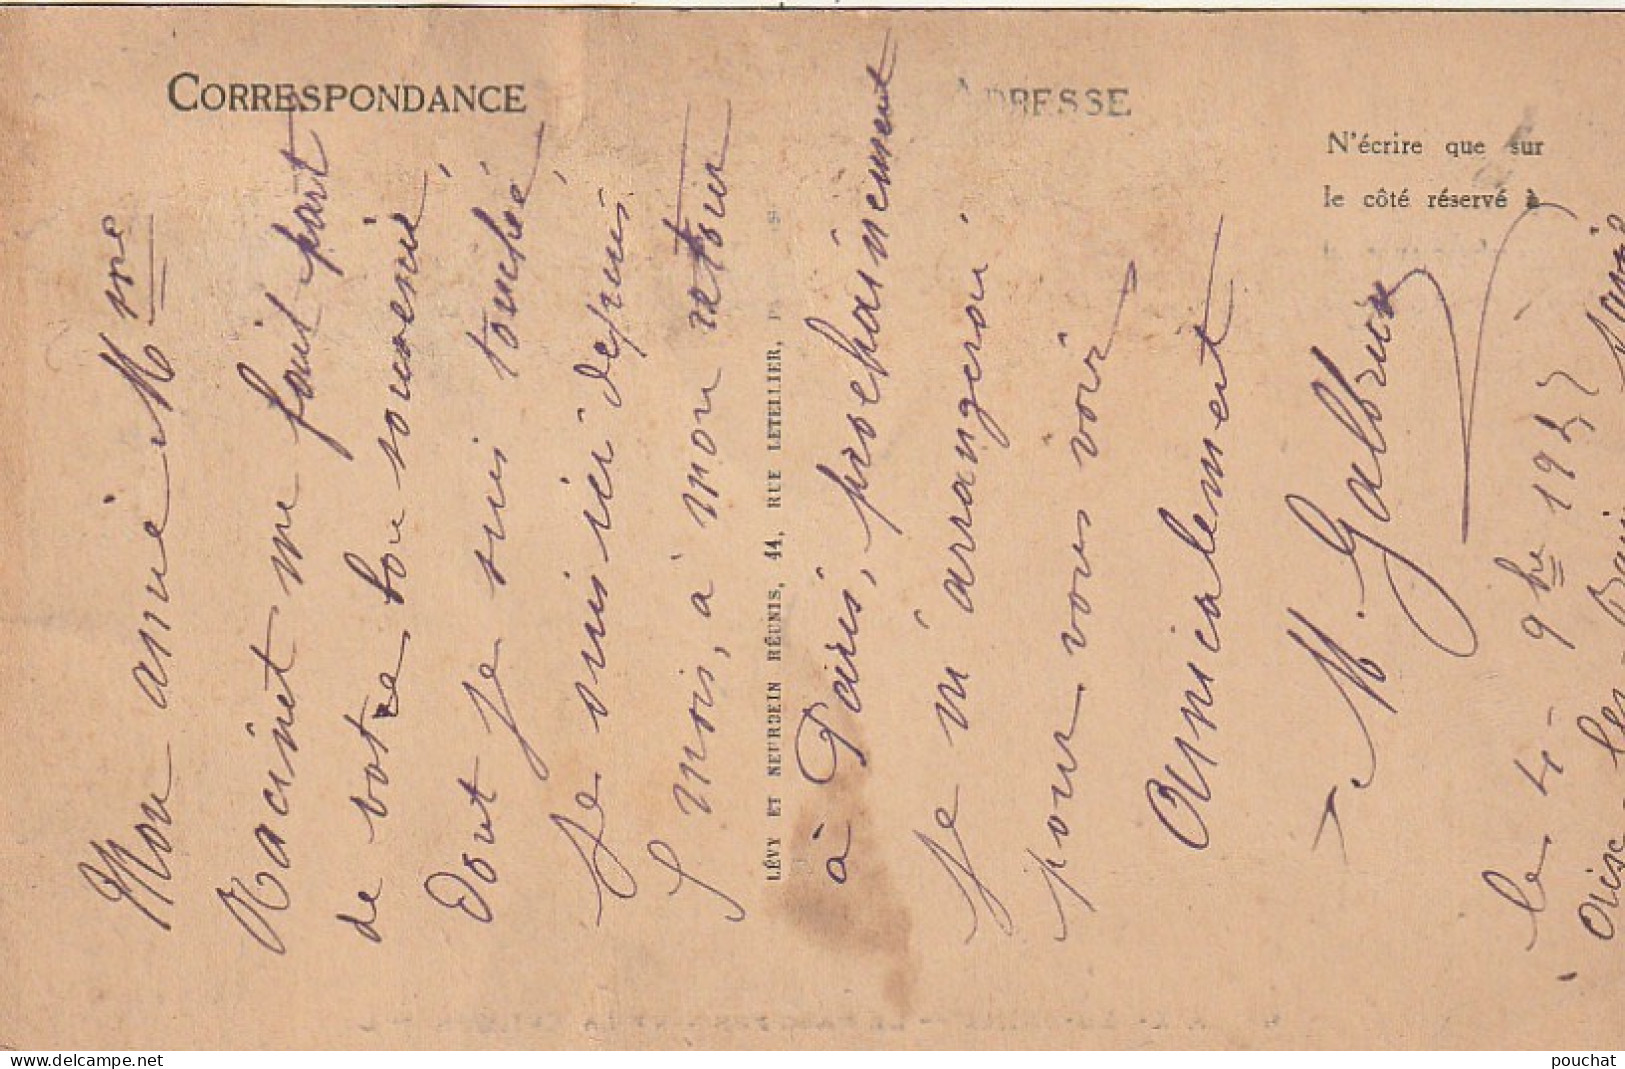 CORRESPONDANCE
ADRESSE
N'écrire que sur
le côté réservé à
LÉVY ET NEURDEIN RÉUNIS, 44, RUE LETELLIER,
Mon amie Mme
Racinet me fait part
de votre bon souvenir
dont je suis touchée
Je suis ici depuis
5 mois, à mon retour
à Paris, prochainement
je m'arrangerai
pour vous voir
Amicalement
M. Galbrun
le 4 - 9bre 1925
Aix-les-Bains
delcampe.net
pouchat